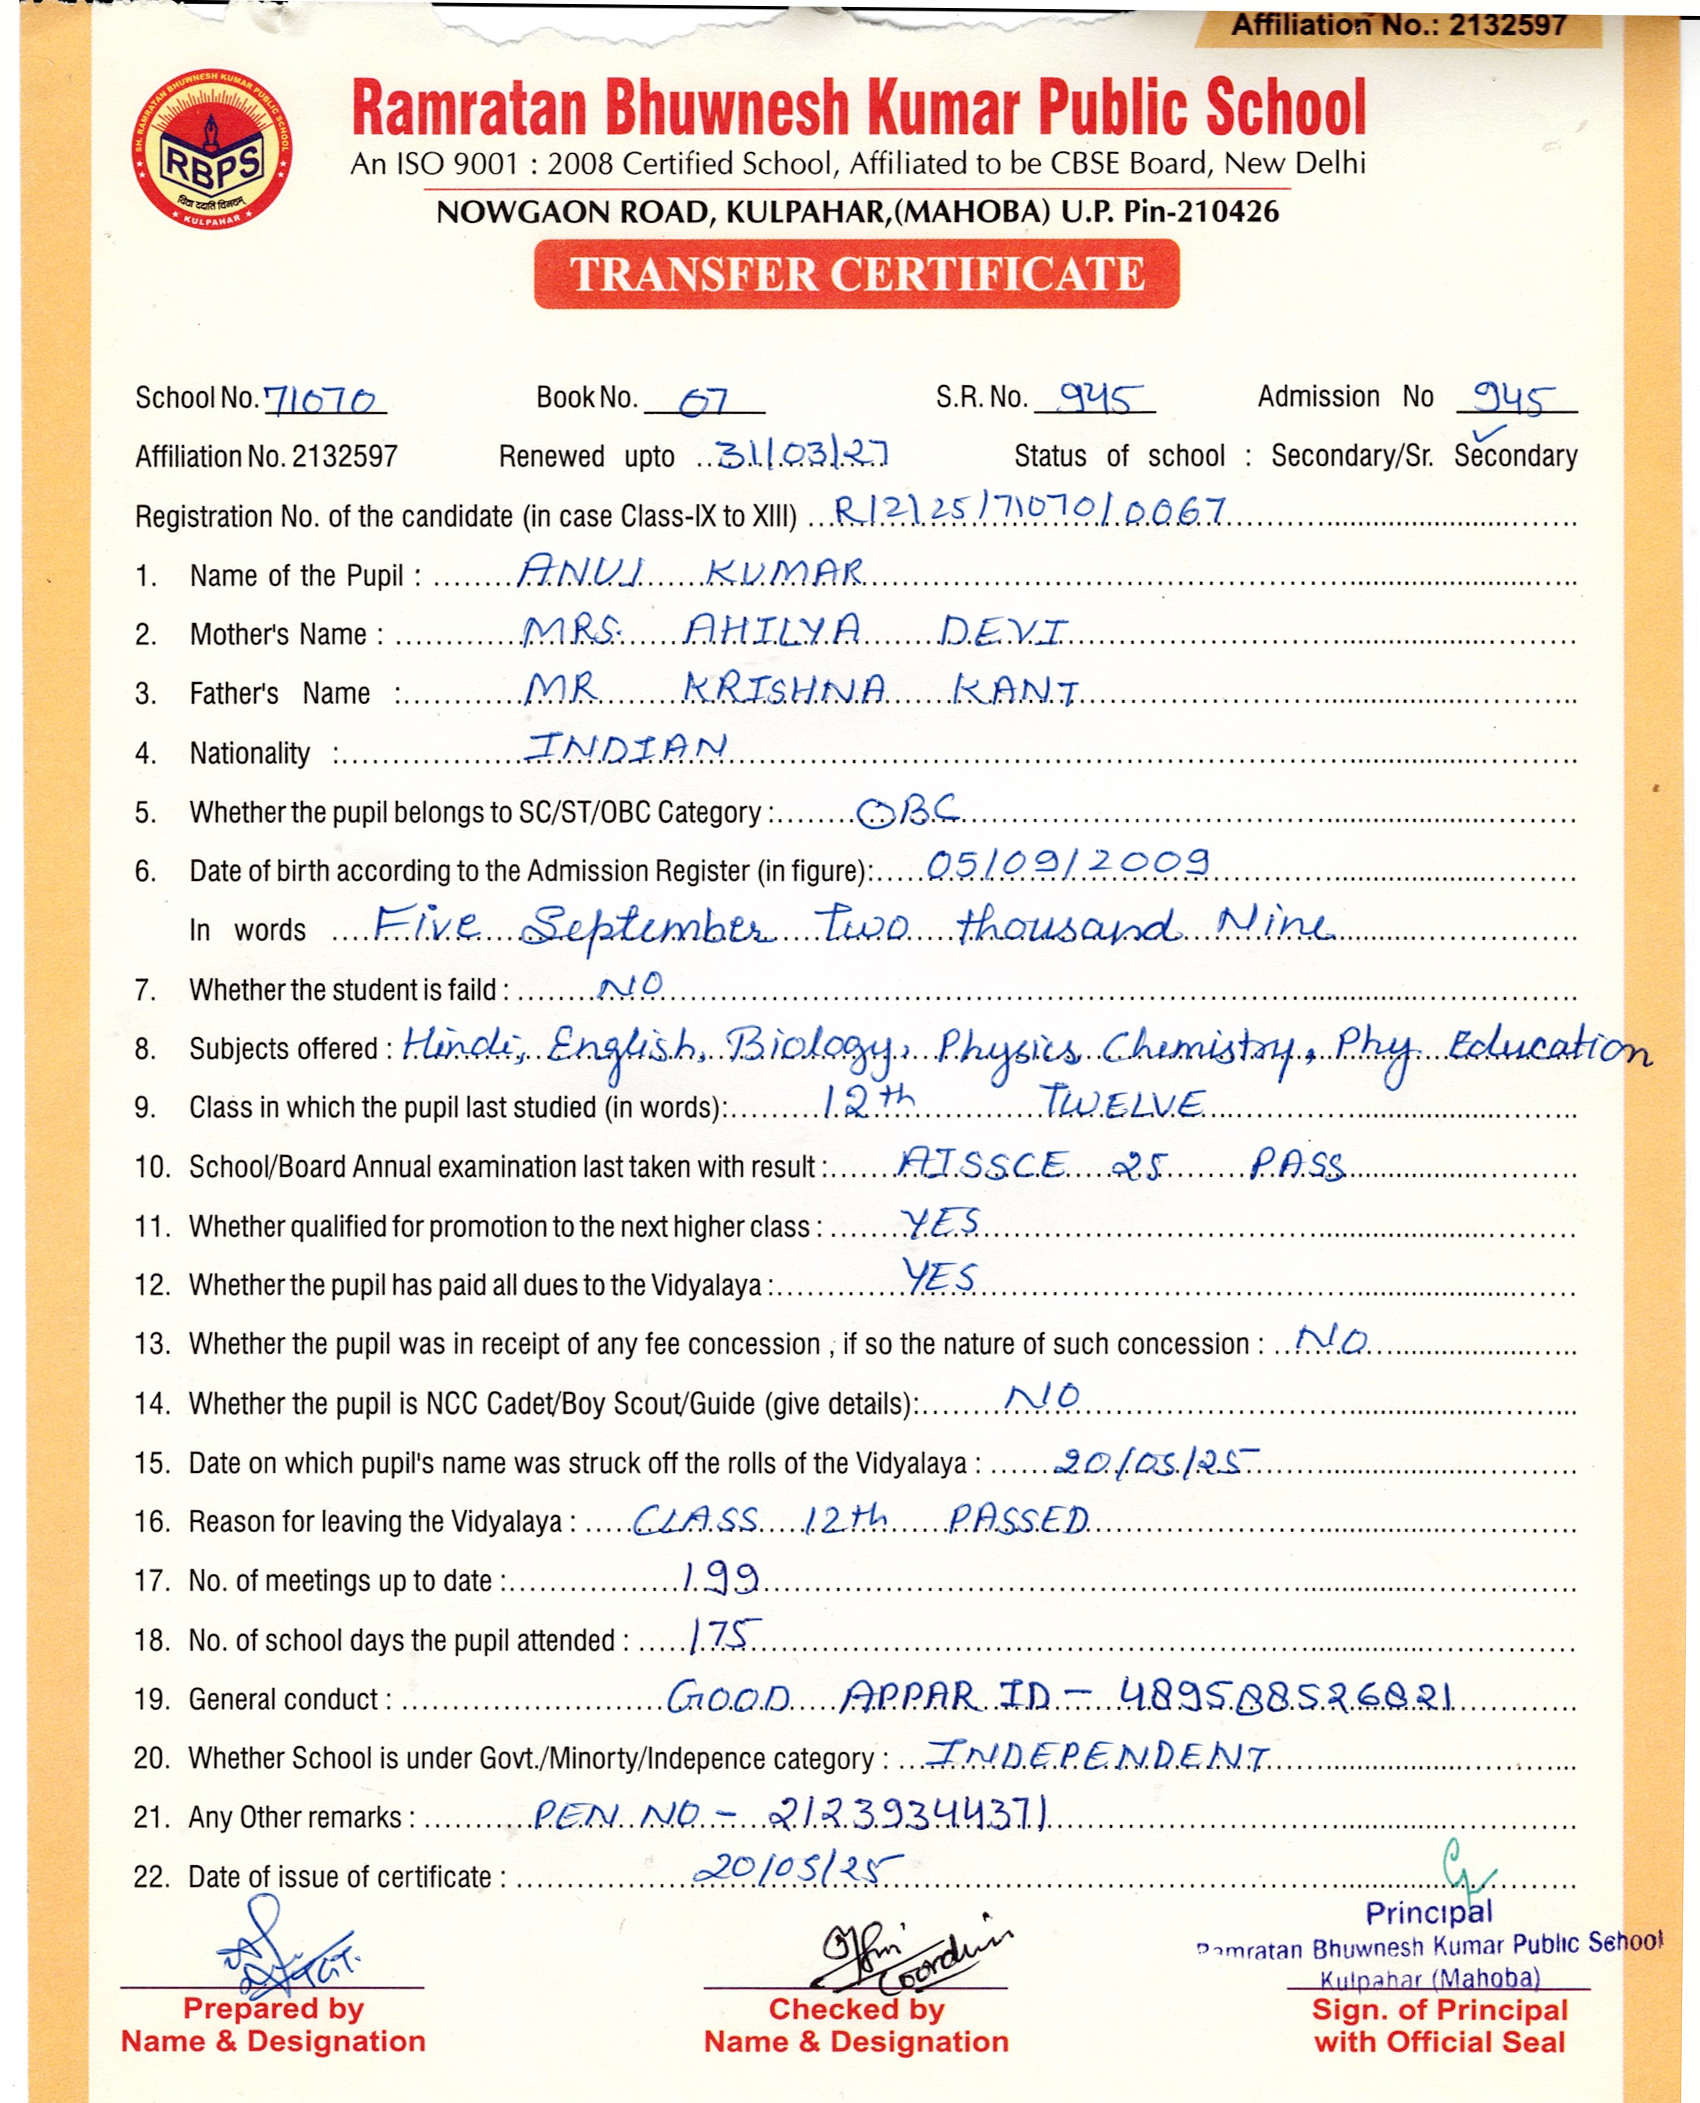 Affiliation No.: 2132597
SH. RAMRATAN BHUWNESH KUMAR PUBLIC SCHOOL
RBPS
विद्या ददाति विनयम्
★ KULPAHAR ★
Ramratan Bhuwnesh Kumar Public School
An ISO 9001 : 2008 Certified School, Affiliated to be CBSE Board, New Delhi
NOWGAON ROAD, KULPAHAR,(MAHOBA) U.P. Pin-210426
TRANSFER CERTIFICATE
School No. 71070 Book No. 67 S.R. No. 945 Admission No 945
Affiliation No. 2132597 Renewed upto 31/03/27 Status of school : Secondary/Sr. Secondary
Registration No. of the candidate (in case Class-IX to XIII) R/2/25/71070/0067
1. Name of the Pupil : ANUJ KUMAR
2. Mother's Name : MRS. AHILYA DEVI
3. Father's Name : MR KRISHNA KANT
4. Nationality : INDIAN
5. Whether the pupil belongs to SC/ST/OBC Category : OBC
6. Date of birth according to the Admission Register (in figure): 05/09/2009
In words Five September Two thousand Nine
7. Whether the student is faild : NO
8. Subjects offered : Hindi, English, Biology, Physics, Chemistry, Phy. Education
9. Class in which the pupil last studied (in words): 12th TWELVE
10. School/Board Annual examination last taken with result : AISSCE 25 PASS
11. Whether qualified for promotion to the next higher class : YES
12. Whether the pupil has paid all dues to the Vidyalaya : YES
13. Whether the pupil was in receipt of any fee concession , if so the nature of such concession : NO
14. Whether the pupil is NCC Cadet/Boy Scout/Guide (give details): NO
15. Date on which pupil's name was struck off the rolls of the Vidyalaya : 20/05/25
16. Reason for leaving the Vidyalaya : CLASS 12th PASSED
17. No. of meetings up to date : 199
18. No. of school days the pupil attended : 175
19. General conduct : GOOD APPAR ID - 489588526821
20. Whether School is under Govt./Minorty/Indepence category : INDEPENDENT
21. Any Other remarks : PEN NO - 21239344371
22. Date of issue of certificate : 20/05/25
Principal
Ramratan Bhuwnesh Kumar Public School
Kulpahar (Mahoba)
Prepared by Checked by Sign. of Principal
Name & Designation Name & Designation with Official Seal